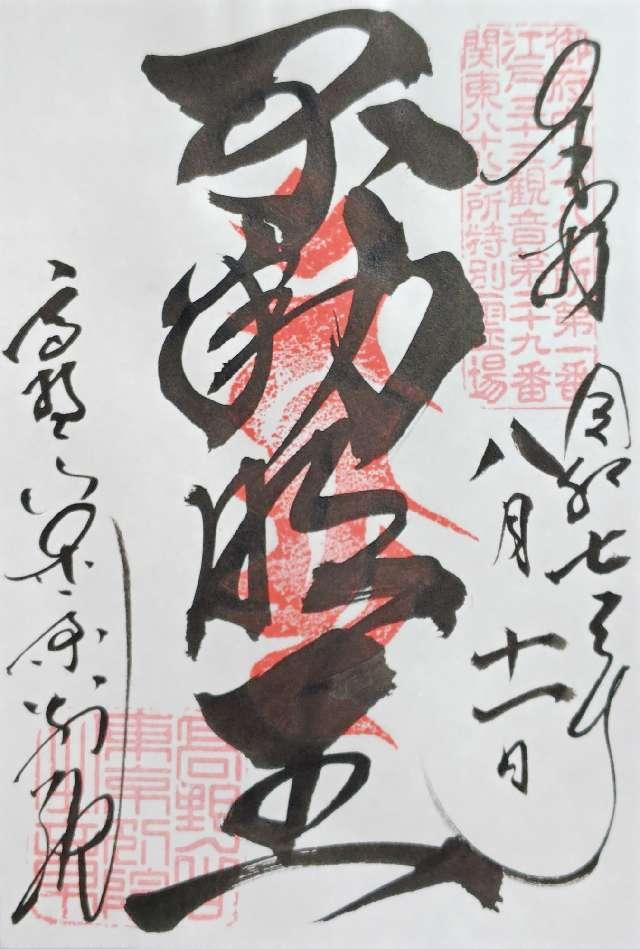 奉拝
令和七年
八月十一日
御府内八十八所第一番
江戸三十三観音第二十九番
関東八十八所特別霊場
不動明王
高野山東京別院
高野山